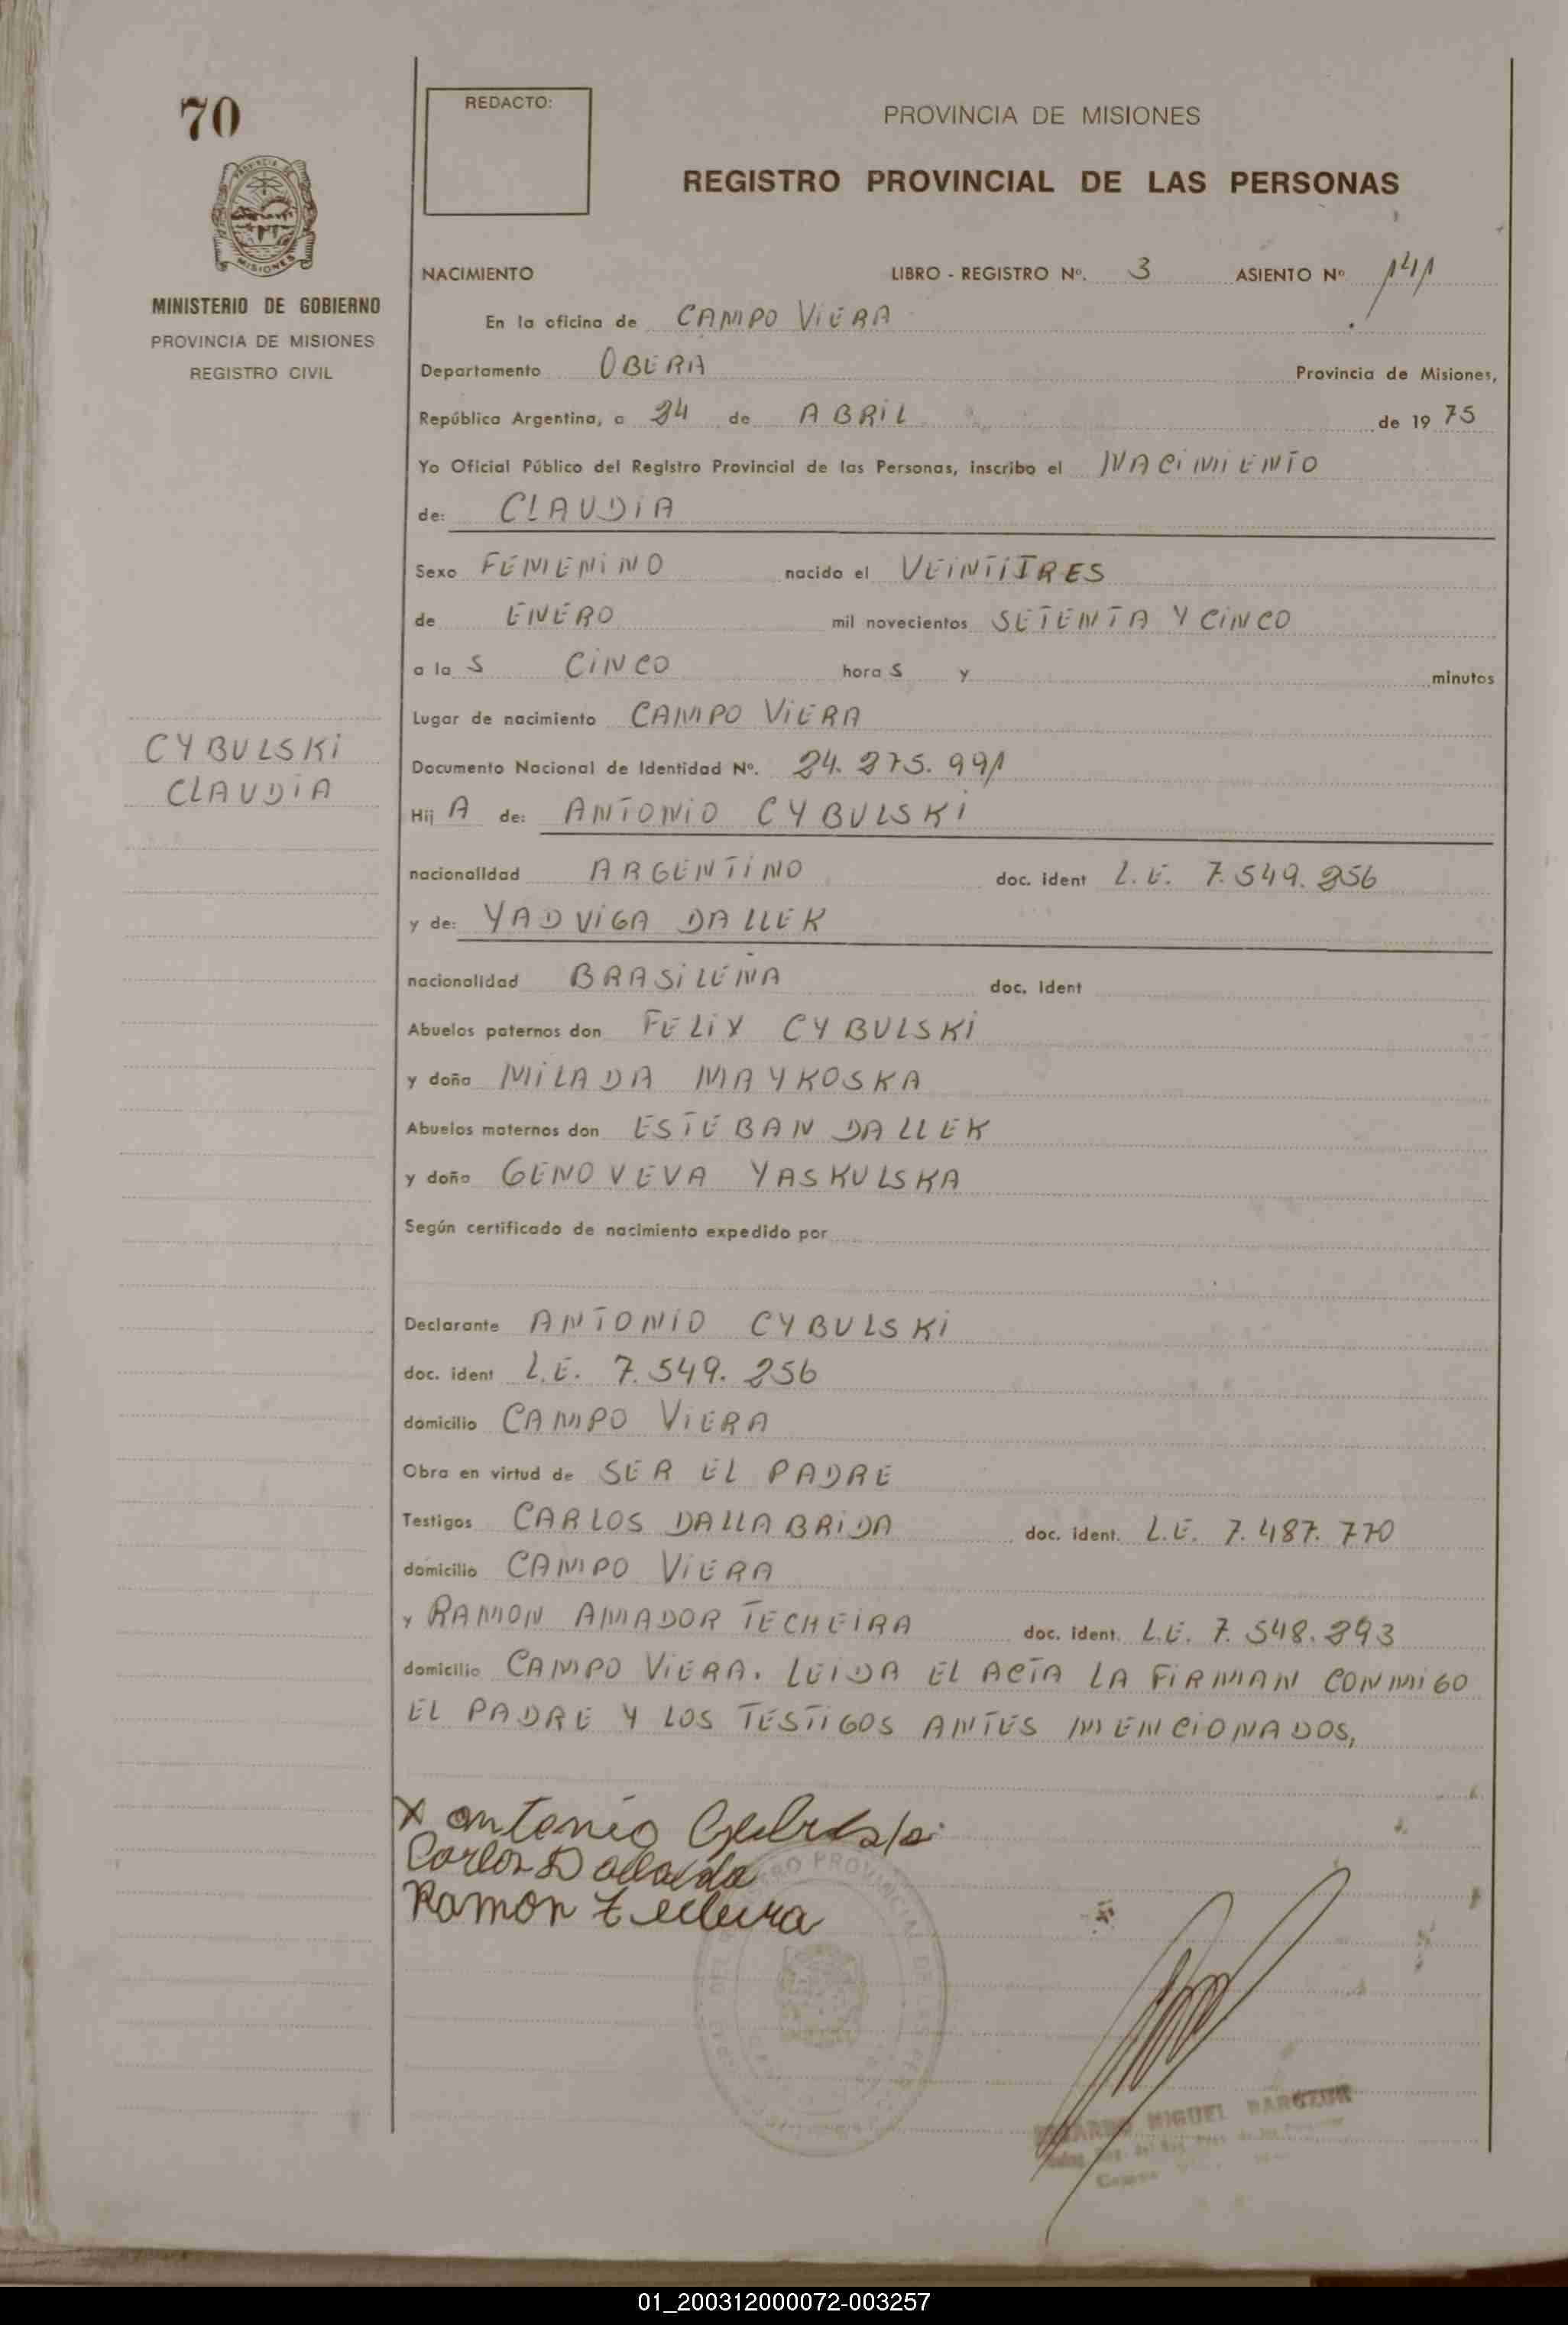 70
REDACTO:
PROVINCIA DE MISIONES
REGISTRO PROVINCIAL DE LAS PERSONAS
PROVINCIA DE
MISIONES
MINISTERIO DE GOBIERNO
PROVINCIA DE MISIONES
REGISTRO CIVIL
NACIMIENTO LIBRO - REGISTRO Nº. 3 ASIENTO Nº 141
En la oficina de CAMPO VIERA
Departamento OBERA Provincia de Misiones,
República Argentina, a 24 de ABRIL de 19 75
Yo Oficial Público del Registro Provincial de las Personas, inscribo el NACIMIENTO
de: CLAUDIA
Sexo FEMENINO nacido el VEINTITRES
de ENERO mil novecientos SETENTA Y CINCO
a la S CINCO hora S y minutos
Lugar de nacimiento CAMPO VIERA
CYBULSKI
CLAUDIA
Documento Nacional de Identidad Nº. 24.275.991
Hij A de: ANTONIO CYBULSKI
nacionalidad ARGENTINO doc. ident L.E. 7.549.256
y de: YADVIGA DALLEK
nacionalidad BRASILEÑA doc. ident
Abuelos paternos don FELIX CYBULSKI
y doña MILADA MAYKOSKA
Abuelos maternos don ESTEBAN DALLEK
y doña GENOVEVA YASKULSKA
Según certificado de nacimiento expedido por
Declarante ANTONIO CYBULSKI
doc. ident L.E. 7.549.256
domicilio CAMPO VIERA
Obra en virtud de SER EL PADRE
Testigos CARLOS DALLABRIDA doc. ident. L.E. 7.487.770
domicilio CAMPO VIERA
y RAMON AMADOR TECHEIRA doc. ident. L.E. 7.548.293
domicilio CAMPO VIERA. LEIDA EL ACTA LA FIRMAN CONMIGO
EL PADRE Y LOS TESTIGOS ANTES MENCIONADOS,
X Antonio
Carlos
Ramon
MIGUEL
01_200312000072-003257